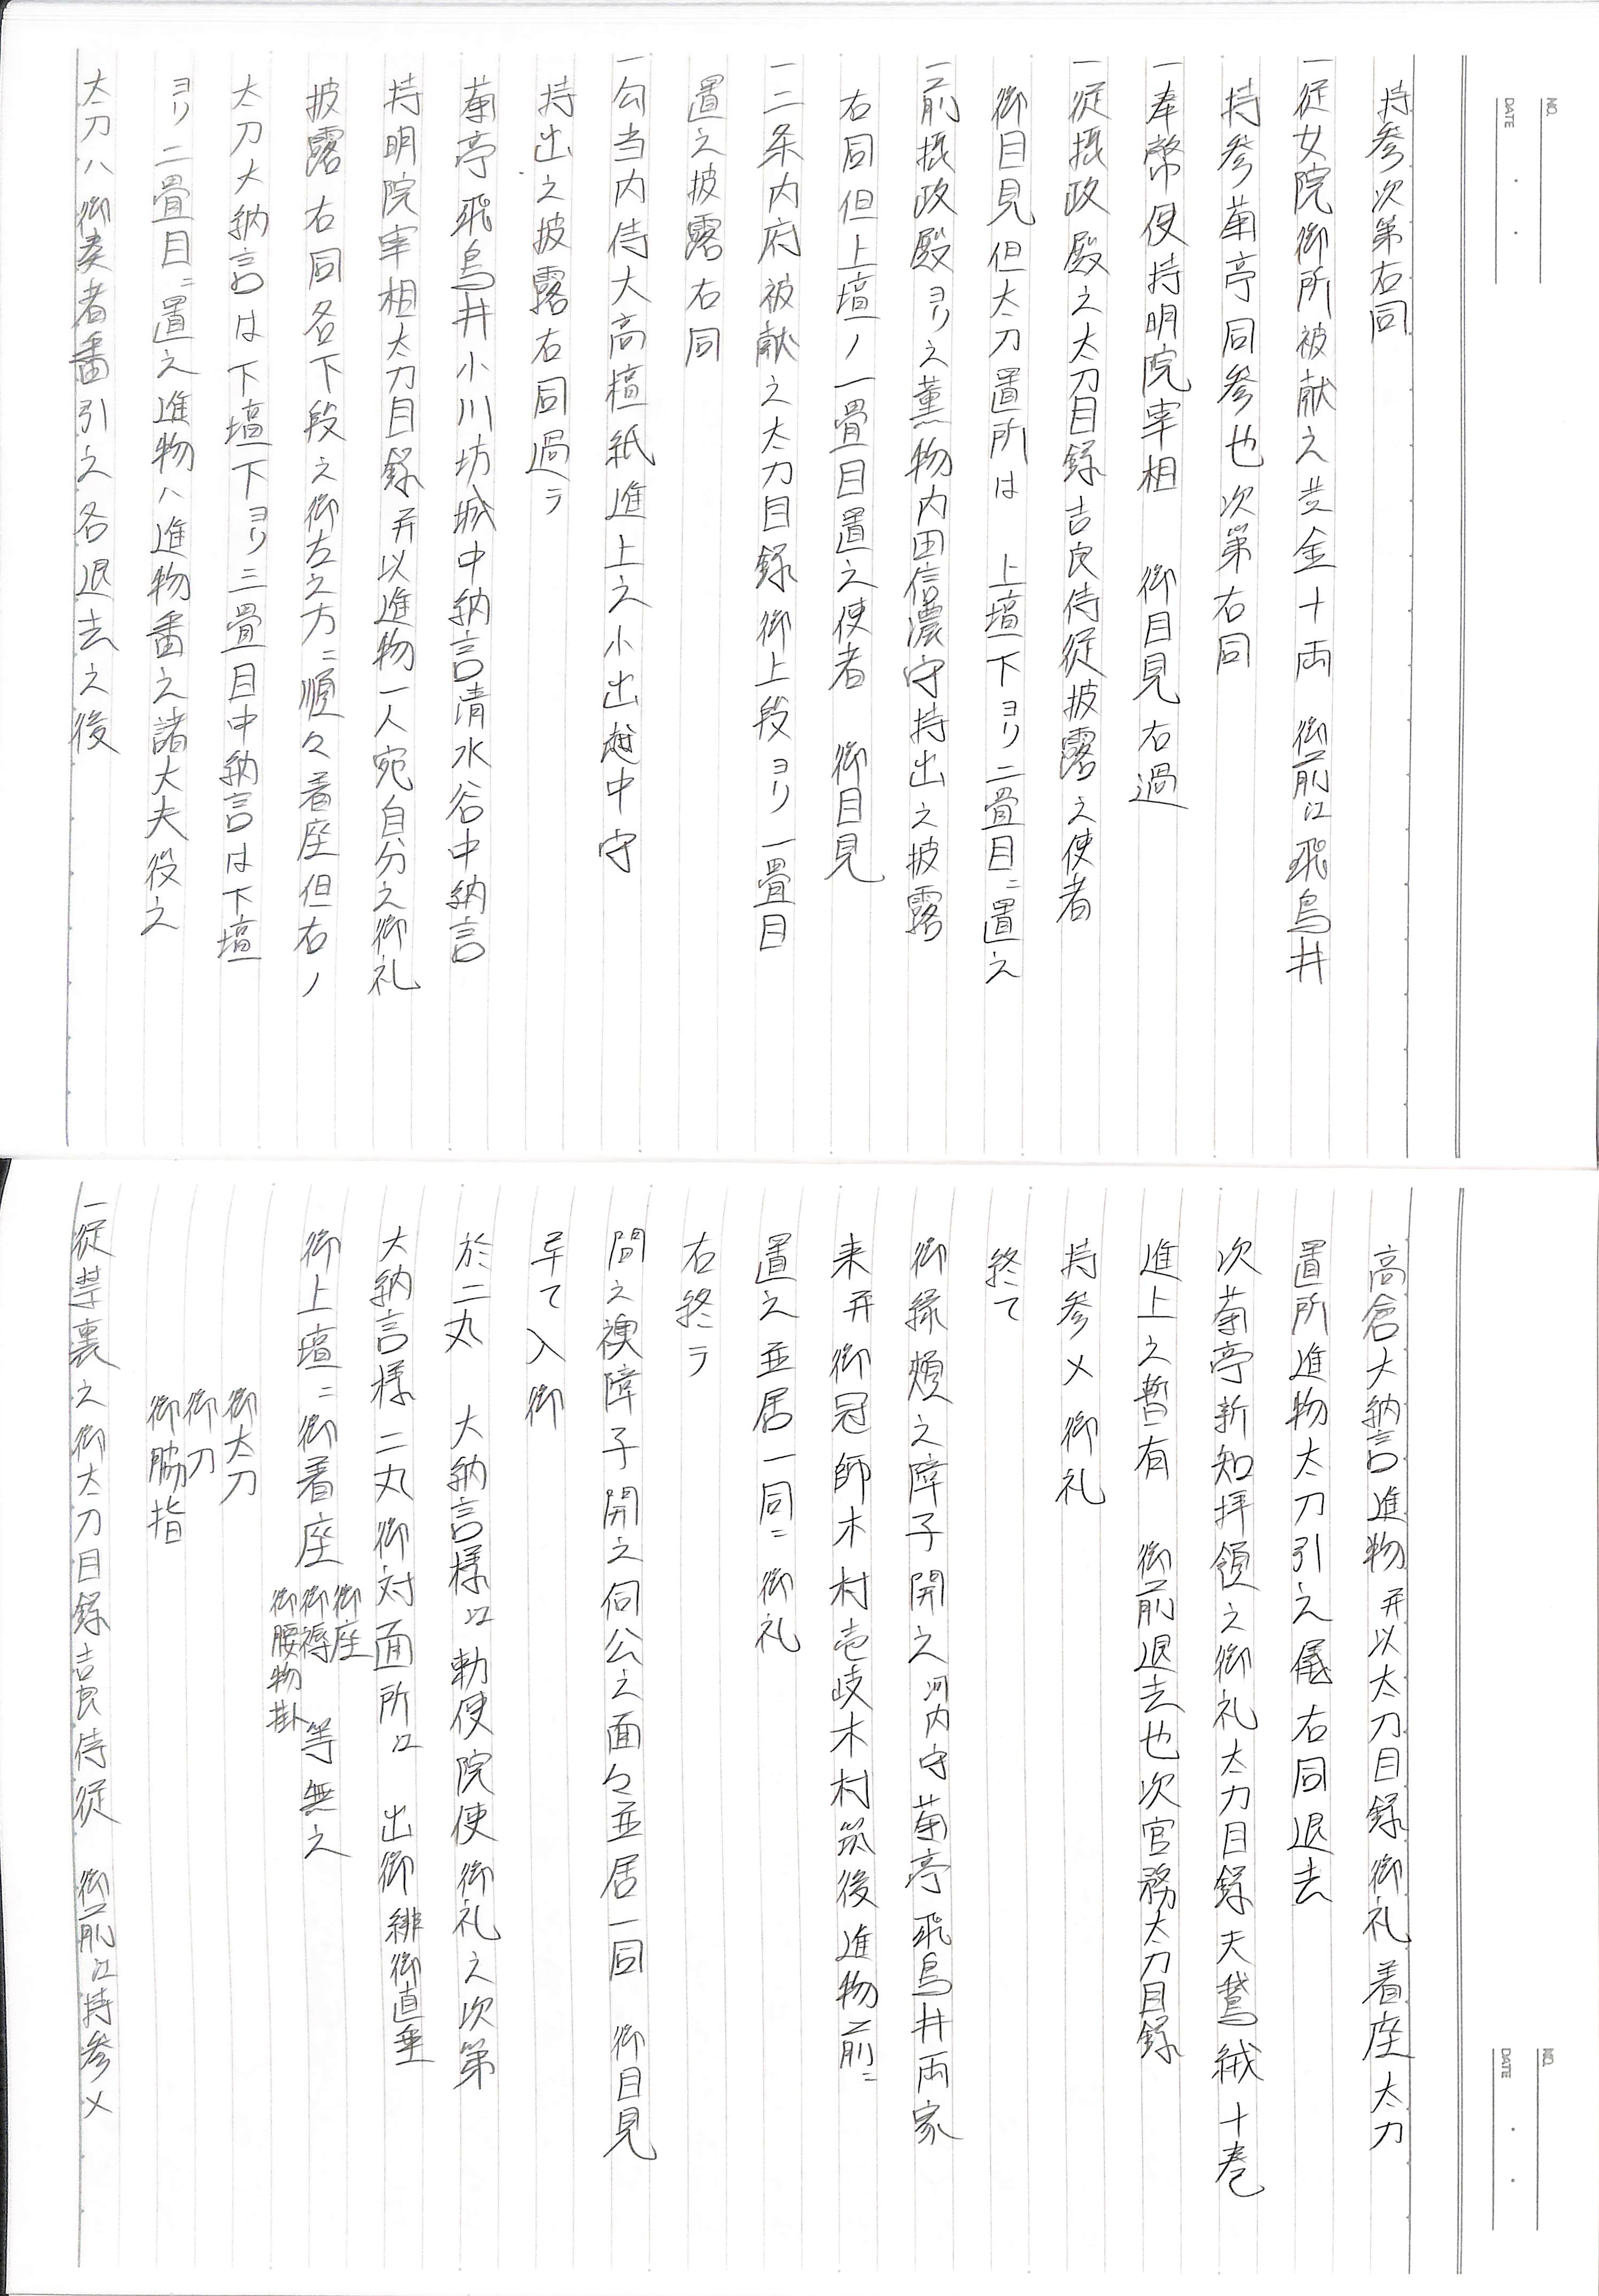 NO.
DATE
持参次第右同
一従女院御所被献之黄金十両　御前江飛鳥井
持参菊亭同参也次第右同
一奉幣使持明院宰相　御目見右過
一従摂政殿之太刀目録吉良侍従披露之使者
御目見但太刀置所は　上壇下ヨリ二畳目ニ置之
一前摂政殿ヨリ之薫物内田信濃守持出之披露
右同但上壇ノ一畳目置之使者　御目見
一二条内府被献之太刀目録御上段ヨリ一畳目
置之披露右同
一勾当内侍大高檀紙進上之小出越中守
持出之披露右同過ラ
菊亭飛鳥井小川坊城中納言清水谷中納言
持明院宰相太刀目録并以進物一人宛自分之御礼
披露右同各下段之御左之方ニ順々着座但右ノ
太刀大納言は下壇下ヨリ三畳目中納言は下壇
ヨリ二畳目ニ置之進物ハ進物番之諸大夫役之
太刀ハ御奏者番引之各退去之後
NO.
DATE
高倉大納言進物并以太刀目録御礼着座太刀
置所進物太刀引之儀右同退去
次菊亭新知拝領之御礼太刀目録天鵞絨十巻
進上之暫有　御前退去也次官務太刀目録
持参〆御礼
終て
御縁頬之障子開之河内守菊亭飛鳥井両家
来并御冠師木村壱岐木村筑後進物前ニ
置之並居一同ニ御礼
右終ラ
間之襖障子開之伺公之面々並居一同　御目見
早て入御
於二丸　大納言様江勅使院使御礼之次第
大納言様二丸御対面所江　出御緋御直垂
御上壇ニ御着座　御座　御褥　御腰物掛　等無之
御太刀
御刀
御脇指
一従禁裏之御太刀目録吉良侍従　御前江持参〆